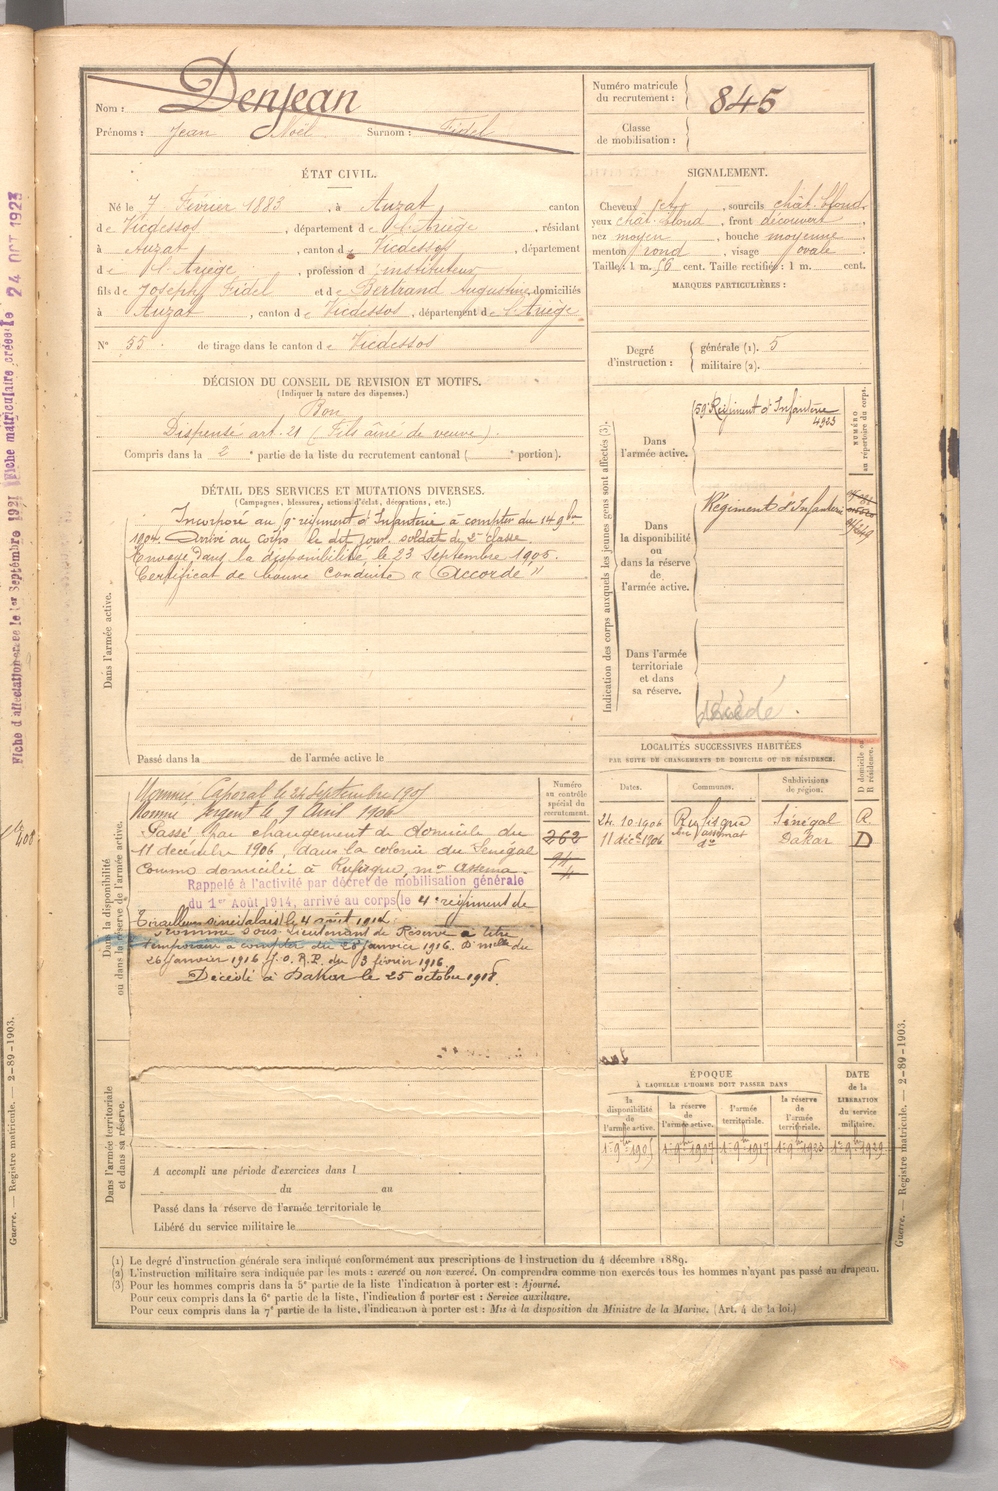 Nom : Denjean
Prénoms : Jean Noël Surnom : Fidel
Numéro matricule du recrutement : 845
Classe de mobilisation :
ÉTAT CIVIL.
Né le 7 Février 1883, à Auzat canton
de Vicdessos, département de l'Ariège, résidant
à Auzat, canton de Vicdessos, département
de l'Ariège, profession d'instituteur
fils de Joseph Fidel et de Bertrand Augustine, domiciliés
à Auzat, canton de Vicdessos, département de l'Ariège
N° 55 de tirage dans le canton de Vicdessos
SIGNALEMENT.
Cheveux et sourcils chât. blond
yeux chât. blond, front découvert
nez moyen, bouche moyenne
menton rond, visage ovale
Taille : 1 m. 56 cent. Taille rectifiée : 1 m. cent.
MARQUES PARTICULIÈRES :
Degré d'instruction : générale (1). 5
militaire (2).
DÉCISION DU CONSEIL DE REVISION ET MOTIFS.
(Indiquer la nature des dispenses.)
Bon
Dispensé art. 21 (Fils aîné de veuve).
Compris dans la 2e partie de la liste du recrutement cantonal ( e portion).
DÉTAIL DES SERVICES ET MUTATIONS DIVERSES.
(Campagnes, blessures, actions d'éclat, décorations, etc.)
Dans l'armée active.
Incorporé au 59e régiment d'Infanterie à compter du 14 9bre
1904. Arrivé au corps le dit jour, soldat de 2me classe.
Envoyé dans la disponibilité, le 23 Septembre 1905.
Certificat de bonne conduite "Accordé"
Passé dans la de l'armée active le
Indication des corps auxquels les jeunes gens sont affectés (3).
Dans l'armée active.
59e Régiment d'Infanterie
4923
NUMÉRO au répertoire du corps.
Dans la disponibilité ou dans la réserve de l'armée active.
Régiment d'Infanterie
Dans l'armée territoriale et dans sa réserve.
Décédé.
Dans la disponibilité ou dans la réserve de l'armée active.
Nommé Caporal le 24 Septembre 1905
Nommé Sergent le 9 Avril 1906
Passé par changement de domicile du
11 décembre 1906, dans la colonie du Sénégal
Comme domicilié à Rufisque, mon
Rappelé à l'activité par décret de mobilisation générale
du 1er Août 1914, arrivé au corps le 4e régiment de
Tirailleurs sénégalais le 4 août 1914.
Nommé sous Lieutenant de Réserve à titre
temporaire à compter du 26 janvier 1916. D. mlle du
26 janvier 1916 J.O.R.F. du 3 février 1916
Décédé à Dakar le 25 octobre 1918.
Numéro au contrôle spécial du recrutement.
262
94
4
LOCALITÉS SUCCESSIVES HABITÉES
PAR SUITE DE CHANGEMENTS DE DOMICILE OU DE RÉSIDENCE.
Dates. Communes. Subdivisions de région. D domicile ou R résidence.
24.10.1906 Rufisque Sénégal R
11 déc. 1906 do Dakar D
ÉPOQUE
À LAQUELLE L'HOMME DOIT PASSER DANS
DATE de la LIBÉRATION du service militaire.
la disponibilité de l'armée active. la réserve de l'armée active. l'armée territoriale. la réserve de l'armée territoriale.
1er 9bre 1905 1er 9bre 1907 1er 9bre 1917 1er 9bre 1923 1er 9bre 1929
Dans l'armée territoriale et dans sa réserve.
A accompli une période d'exercices dans l
du au
Passé dans la réserve de l'armée territoriale le
Libéré du service militaire le
(1) Le degré d'instruction générale sera indiqué conformément aux prescriptions de l'instruction du 4 décembre 1889.
(2) L'instruction militaire sera indiquée par les mots : exercé ou non exercé. On comprendra comme non exercés tous les hommes n'ayant pas passé au drapeau.
(3) Pour les hommes compris dans la 5e partie de la liste l'indication à porter est : Ajourné.
Pour ceux compris dans la 6e partie de la liste, l'indication à porter est : Service auxiliaire.
Pour ceux compris dans la 7e partie de la liste, l'indication à porter est : Mis à la disposition du Ministre de la Marine. (Art. 4 de la loi.)
Guerre. — Registre matricule. — 2-89-1903.
Guerre. — Registre matricule. — 2-89-1903.
Fiche d'affectation créée le 1er Septembre 1921 Fiche matriculaire créée le 24 OCT 1923